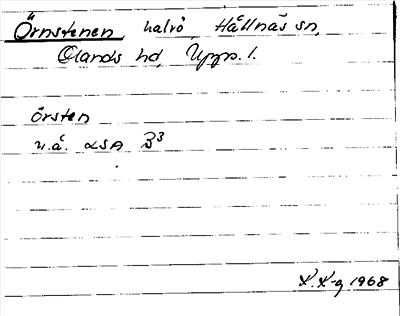 Örnstenen halvö, Hållnäs sn,
Olands hd, Upps. l.
örsten
u.å. LSA B3
1968